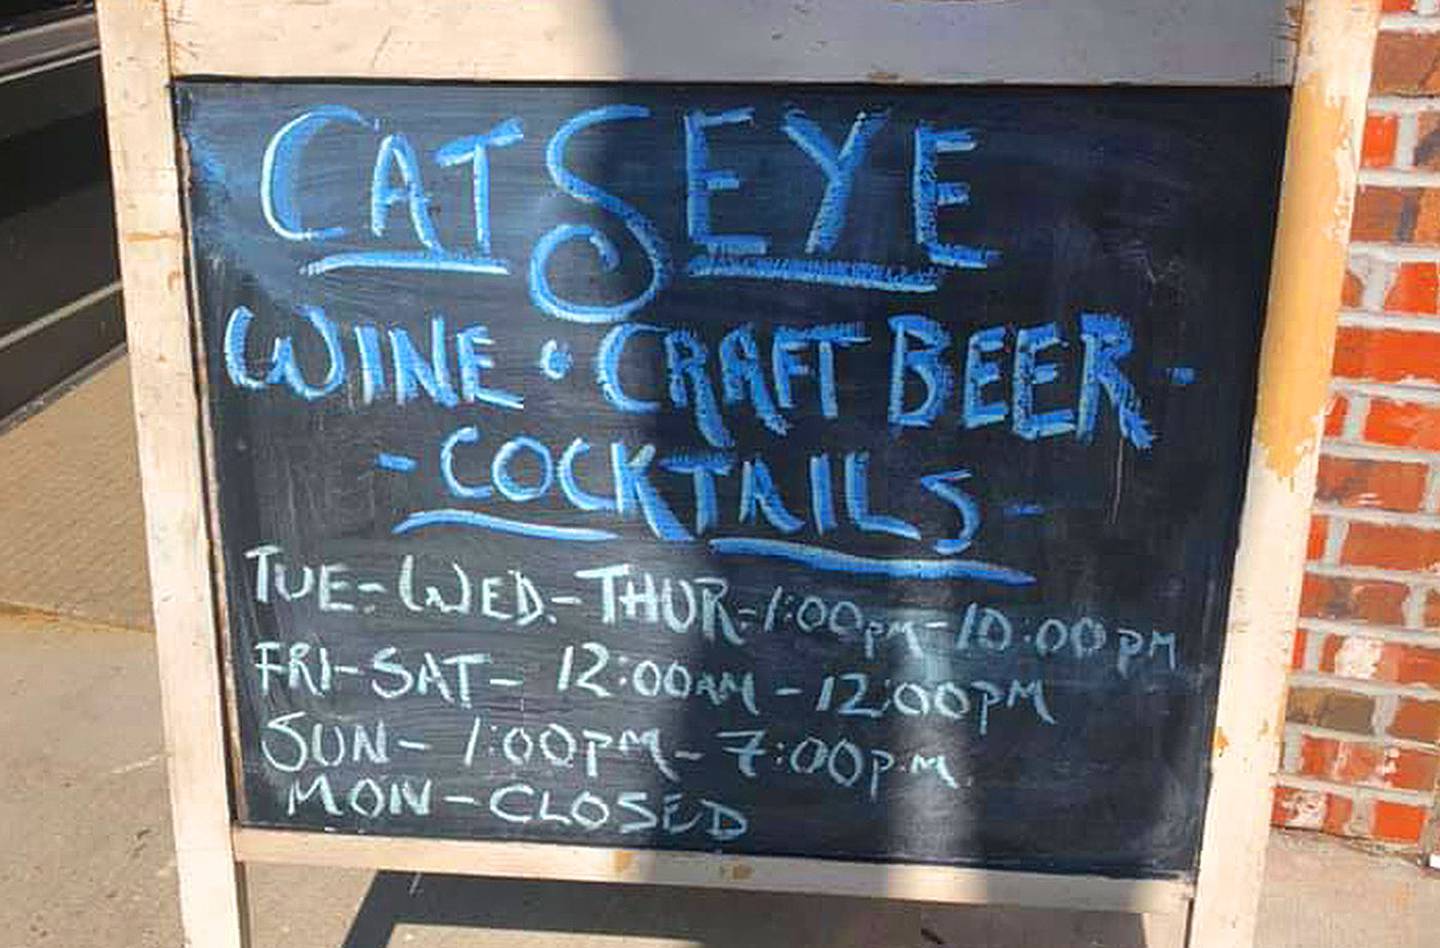 CATSEYE
WINE • CRAFT BEER -
- COCKTAILS -
TUE - WED. - THUR - 1:00PM - 10:00PM
FRI - SAT - 12:00AM - 12:00PM
SUN - 1:00PM - 7:00P.M.
MON - CLOSED